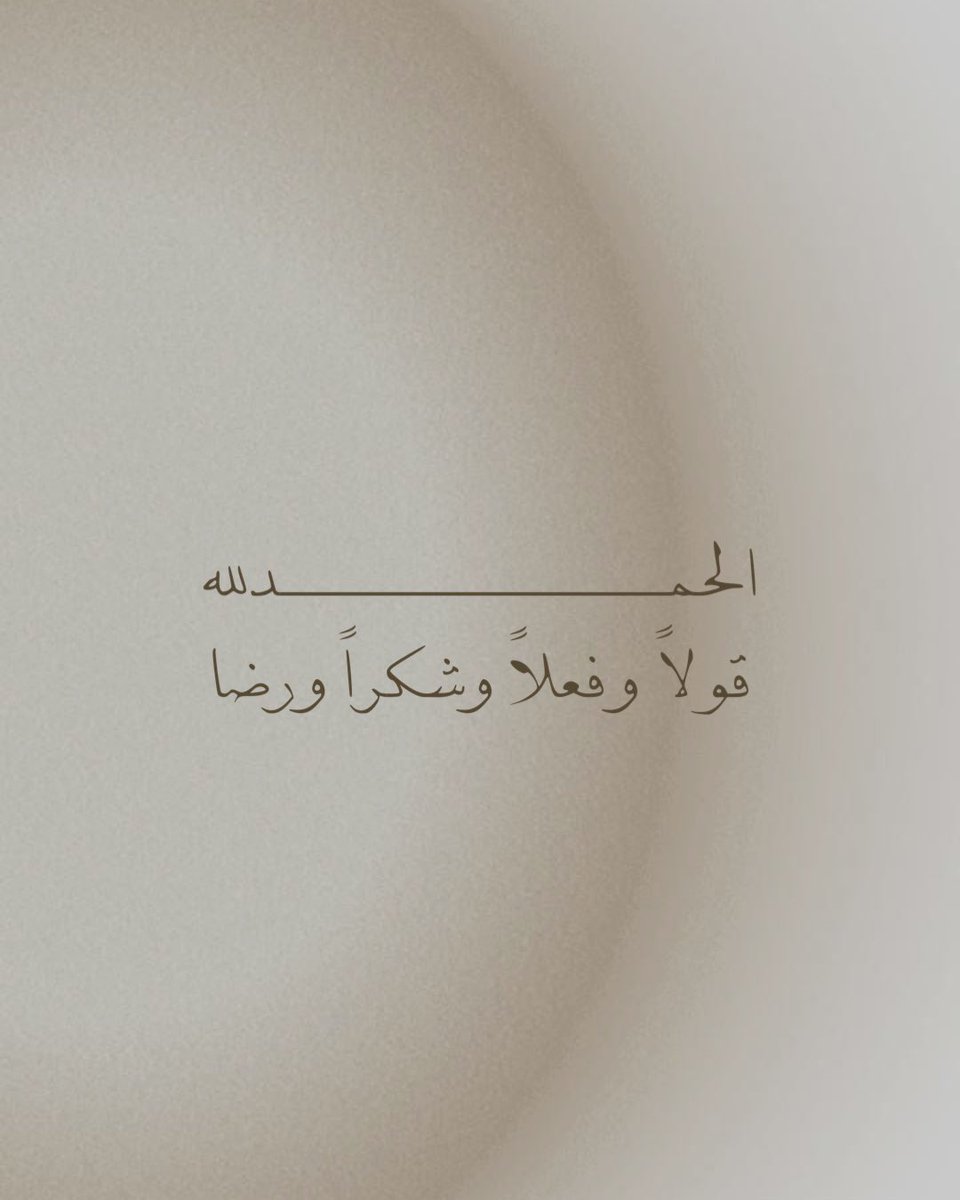 الحمـــــــــــــــــــــدلله
قولاً وفعلاً وشكراً ورضا